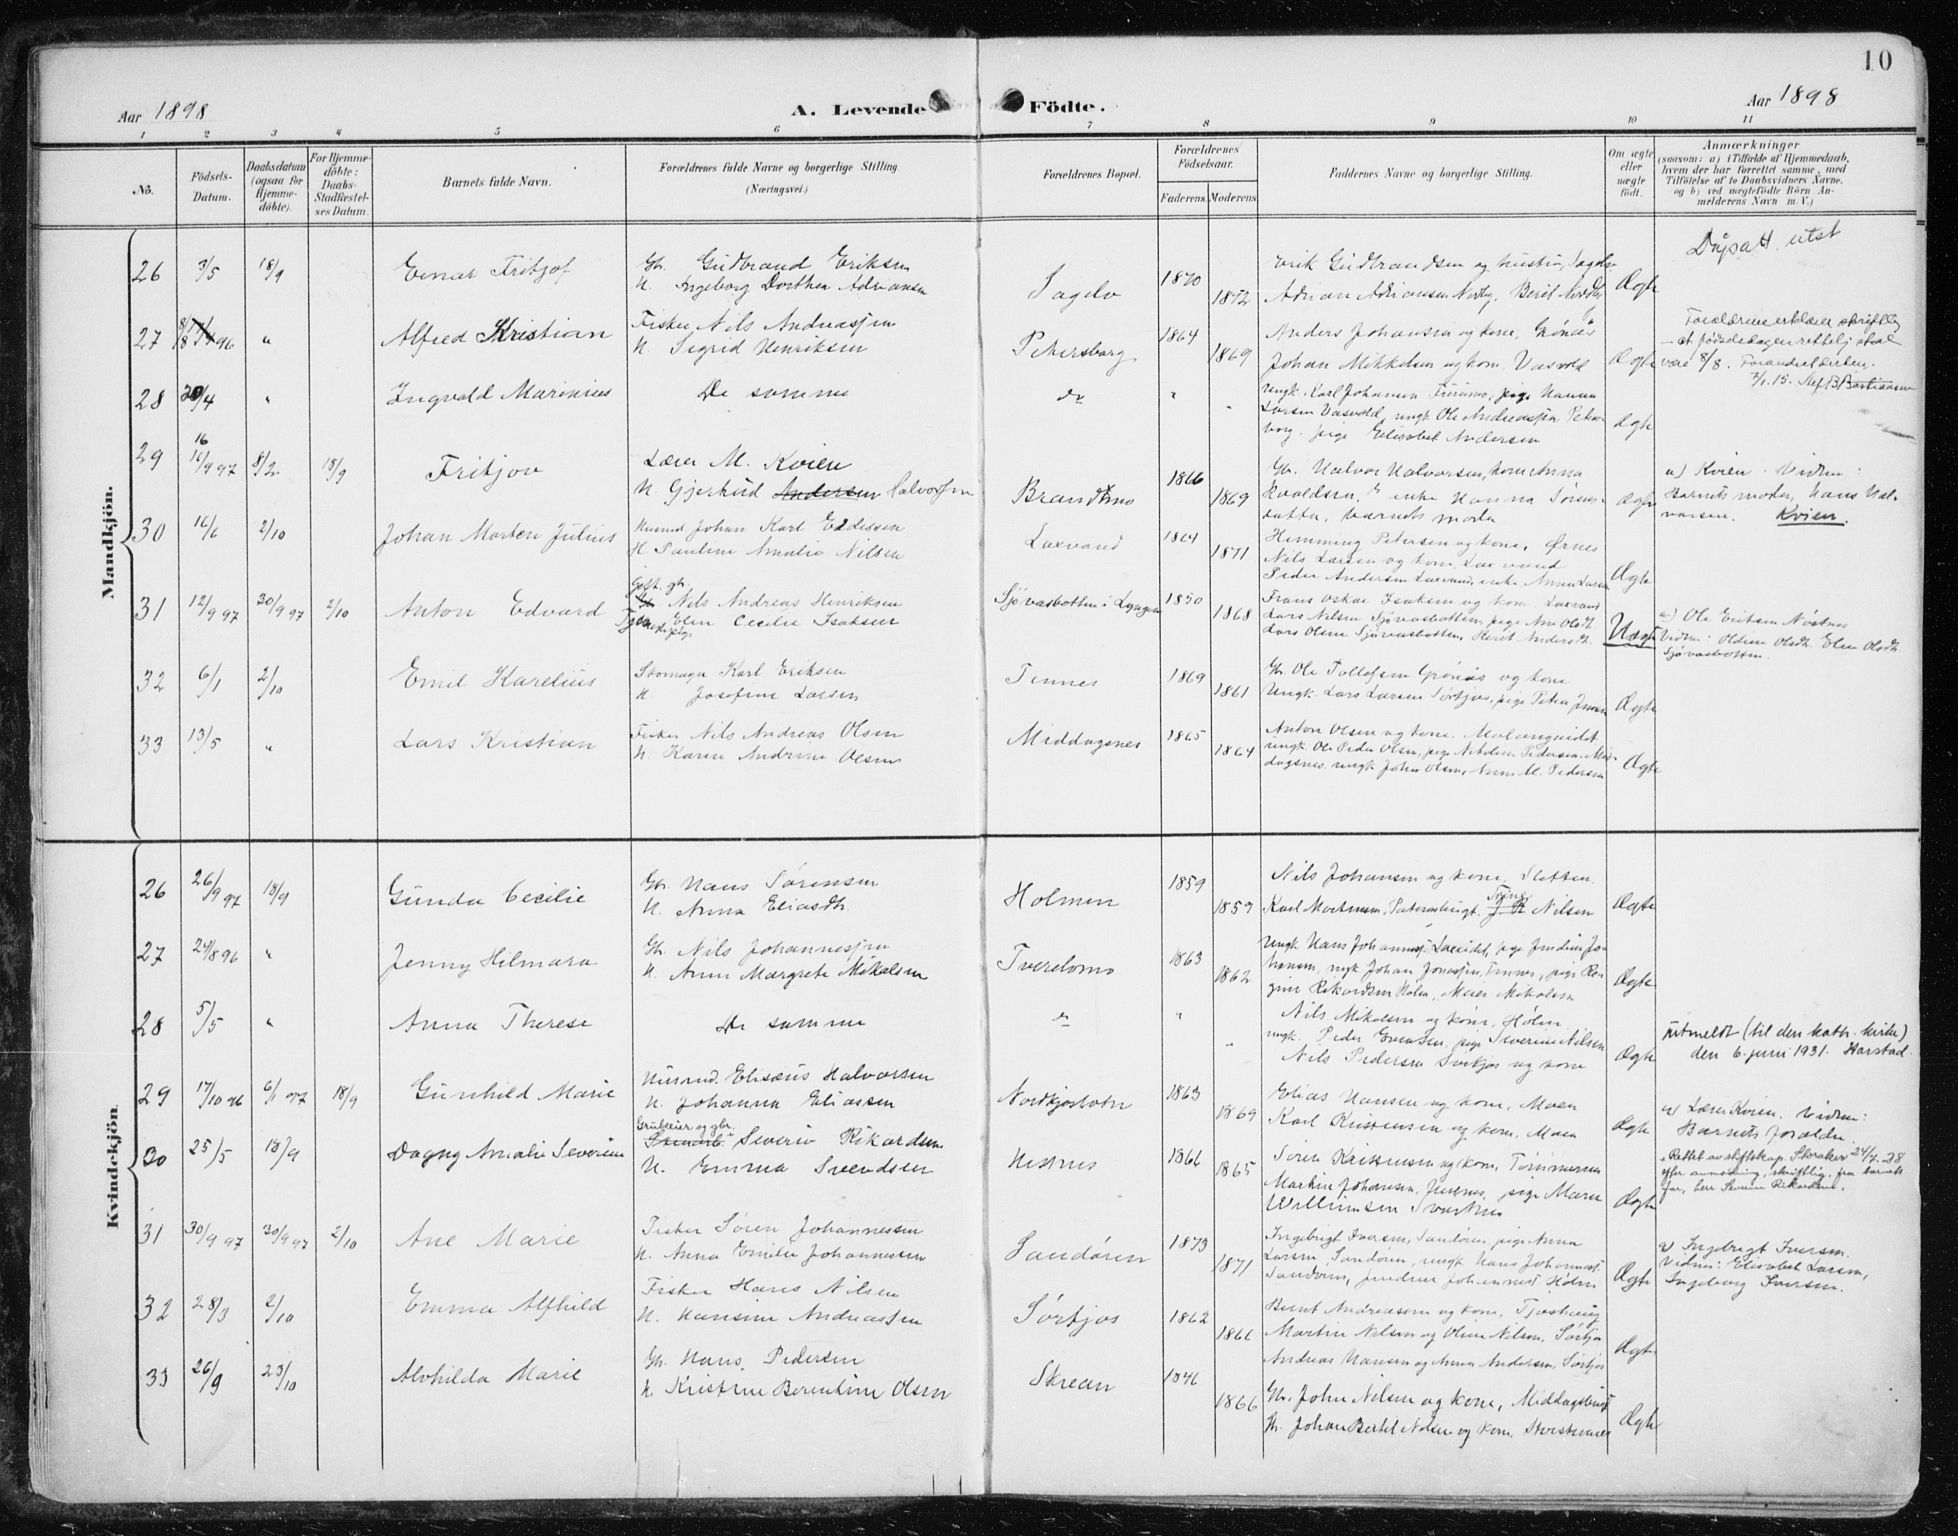 10
Aar 1898
A. Levende Födte.
Aar 1898
1 2 3 4 5 6 7 8 9 10 11
No.
Födsels-
Datum.
Daabsdatum
(ogsaa for
Hjemme-
döbte).
For Hjemme-
döbte:
Daabs-
Stadfæstel-
ses Datum.
Barnets fulde Navn.
Forældrenes fulde Navne og borgerlige Stilling
(Næringsvei.)
Forældrenes Bopæl.
Forældrenes
Födselsaar.
Faderens.
Moderens.
Faddernes Navne og borgerlige Stilling.
Om ægte
eller
uægte
født.
Anmærkninger
(saasom: a) i Tilfælde af Hjemmedaab,
hvem der har forrettet samme, med
Tilföielse af to Daabsvidners Navne,
og b) ved uægtefödte Börn An-
melderens Navn m. V.)
Mandkjön.
26 3/5 18/9 Einar Fritjof
Gb. Gudbrand Eriksen
H. Ingeborg Dorthea Adriansen
Sagelv 1870 1872
Erik Gudbrandsen og hustru,
Adrian Adriansen Nordby, Berit
Ægte
Dåpsatt utst
27 8/8 96 " Alfred Kristian
Fisker Nils Andreassen
H. Sigrid Henriksen
Petersborg 1864 1869
Anders Johansen og kone, Grønås
Johan Mikkelsen og kone, Vasvold
Ægte
Forældrene erklærer skriftlig
at fødselsdagen rettelig skal
være 8/8.
7/1.15.
28 30/4 " Ingvald Marinius
De samme
do " "
ungk. Karl Johansen, pige Hanna
Larsen Vasvold, ungk Ole Andreassen Peters-
borg, pige Elisabet Andersen
Ægte
29 16/9 97 8/2 18/9 Fritjov
Lærer M. Kvien
H. Gjertrud Andersen Halvorsen
Brandmo 1866 1869
Gb. Halvor Halvorsen, kone Anna
enke Hanna
Barnets moder
Ægte
a) Kvien. Vidner:
Barnets moder, Hans Hal-
vorsen. Kvien.
30 16/6 2/10 Johan Morten Julius
Husmd Johan Karl Eddissen
H. Pauline Amalia Nilsen
Laxvand 1864 1871
Hemming Petersen og kone, Ørnes
Nils Larsen og kone, Laxvand
Peder Andersen Laxvand, enke Anna Larsen
Ægte
31 12/9 97 30/9 97 2/10 Anton Edvard
Gift. gb.
Nils Andreas Henriksen
Elen Cecilie Isaksen
Sjøvasbotten i Lyngen 1850 1868
Frans Oskar Isaksen og kone Laxvand
Lars Nilsen Sjøvasbotten, pige Ane Olsdt.
Lars Olsen Sjøvasbotten, Berit Andersdt.
Uægte
a) Ole Eriksen
Vidner: Oldine Olsdt. Elen Olsdt.
Sjøvasbotten.
32 6/1 2/10 Emil Karelius
Skomager Karl Eriksen
H. Josefine Larsen
Tennes 1869 1861
Gb. Ole Tollefsen Grønås og kone
Ungk. Lars Larsen Sørkjos, pige Petra Jensen
Ægte
33 13/5 " Lars Kristian
Fisker Nils Andreas Olsen
H. Karen Andrine Olsen
Middagsnes 1865 1864
Anton Olsen og kone. Malangseidet
ungk Ole Peder Olsen, pige Nikoline Pedersen Mid-
dagsnes, ungk John Olsen, Anne M. Pedersen
Ægte
Kvindekjön.
26 26/9 97 18/9 Gunda Cecilie
Gb. Hans Sørensen
H. Anna Eliasdt.
Holmen 1859 1859
Nils Johansen og kone, Sletten.
Karl Mortensen, Nilsen
Ægte
27 24/8 96 " Jenny Helmara
Gb. Nils Johannessen
H. Anne Margrete Mikalsen
Tverelvmo 1863 1862
Ungk Hans Johannessen Laxeidet, pige Jendine Jo-
hansen, ungk Johan Jonassen, Tennes, pige Re-
gine Rikardsen Holen, Meier Mikalsen
Ægte
28 5/5 " Anna Therese
De samme
do " "
Nils Mikalsen og kone, Holen
ungk. Peder Evensen, pige Severine Nilsen
Nils Pedersen Sørkjos og kone
Ægte
utmeldt (til den kath. kirke)
den 6. juni 1931. Harstad.
29 17/10 96 6/1 97 18/9 Gunhild Marie
Husmd. Elisæus Halvorsen
H. Johanna Eliassen
Nordkjosbotn 1863 1869
Elias Hansen og kone, Moen
Karl Kristensen og kone, Moen
Ægte
a) Lærer Kvien. Vidner:
Barnets forældre.
30 25/5 18/9 Dagny Amalie Severine
Grubeeier og gbr.
Severin Rikardsen
H. Emma Svendsen
Hestnes 1866 1865
Søren Kristensen og kone, Tømmernes
Martin Johansen, Hestnes, pige Maren
Willumsen Svartnes
Ægte
Rettet av stiftskap. Skraker 24/7.28
efter anmodning, skriftlig, fra barnets
far, herr Severin Rikardsen.
31 30/9 97 30/9 97 2/10 Ane Marie
Fisker Søren Johannessen
H. Anna Emelie Johannessen
Sandøren 1873 1871
Ingebrigt Iversen, Sandøren, pige Anna
Larsen, Sandøren, ungk Hans Johannessen
Sandøren, Jendine Johannesd. Holen
Ægte
a) Ingebrigt Iversen.
Vidner: Elisabet Larsen,
Ingeborg Iversen.
32 28/3 2/10 Emma Alfhild
Fisker Hans Nilsen
H. Hansine Andreassen
Sørkjos 1862 1866
Bernt Andreassen og kone,
Martin Nilsen og Oline Nilsen, Sørkjos
Andreas Hansen og Anna Andersen, Sørkjos
Ægte
33 26/9 23/10 Alvhilda Marie
Gb. Hans Pedersen
H. Kristine Berentine Olsen
Skrean 1846 1866
Gb. John Nilsen og kone, Middagsbugt
Gb. Johan Bertel Nilsen og kone, Storsteinnes
Ægte